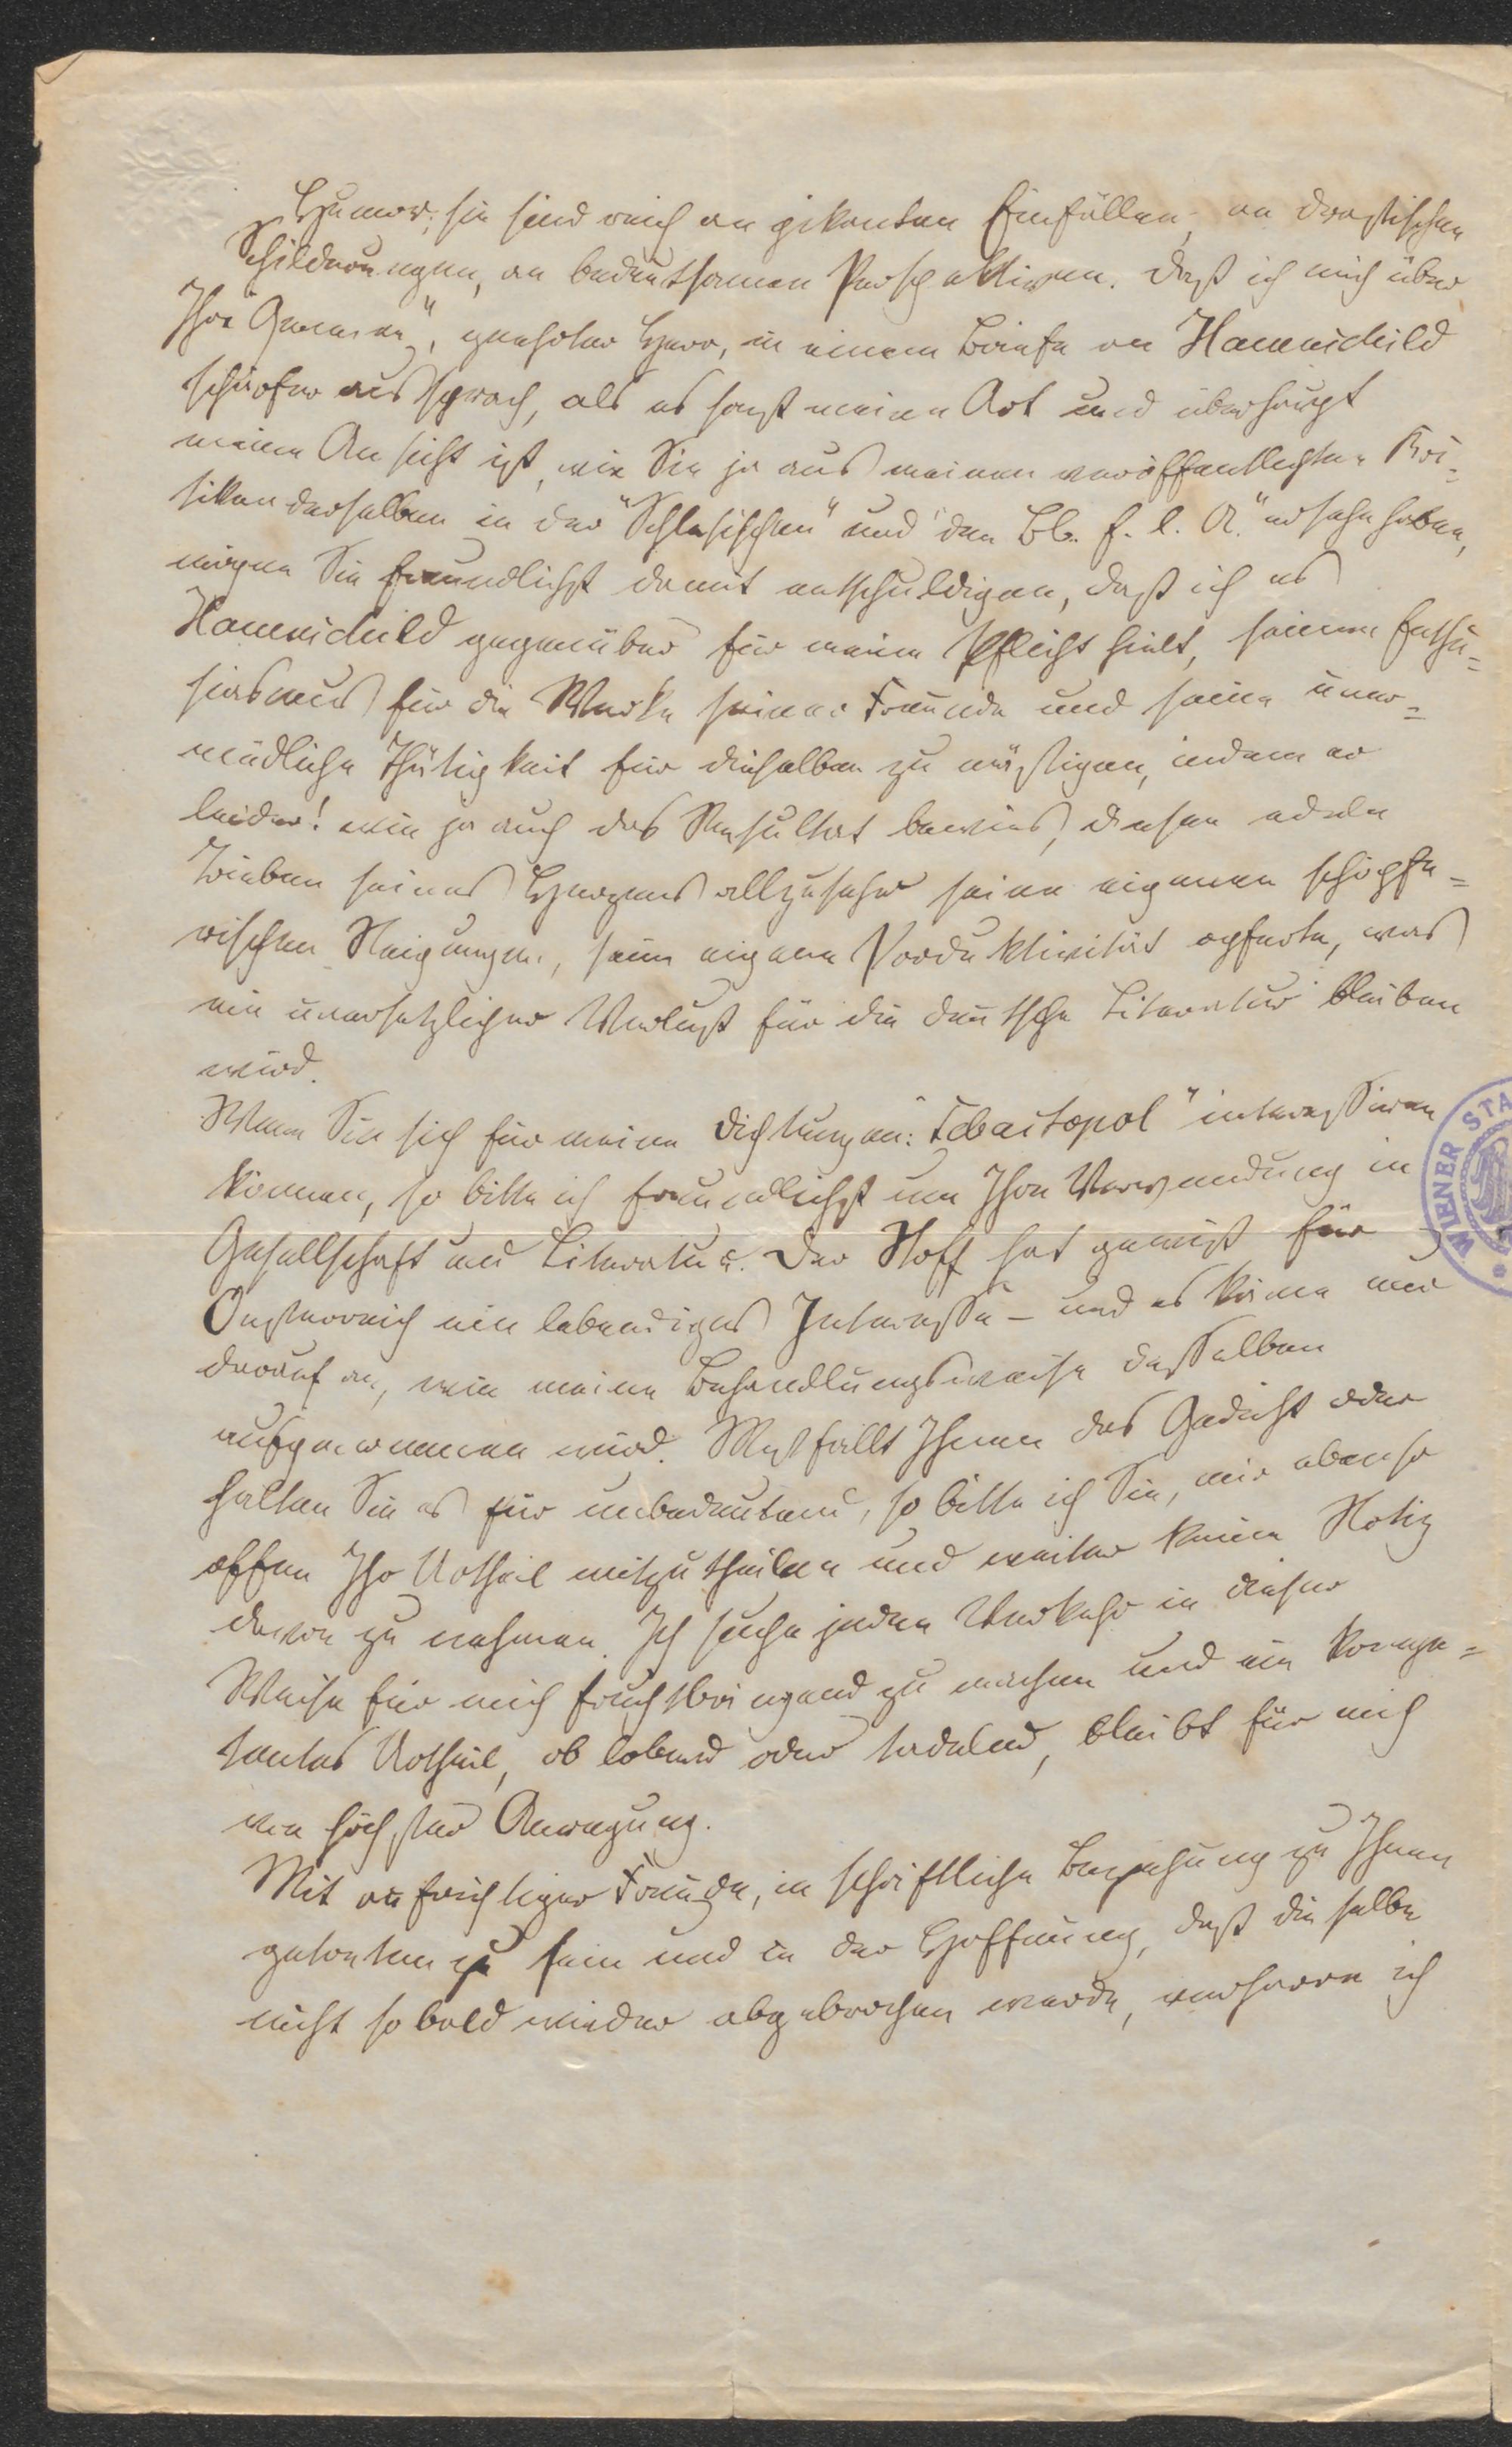 Humor; sie sind reich an pikanten Einfällen, an drastischen
Schilderungen, an bedeutsamen Perspektiven. Daß ich mich über
Ihre " ", geehrter Herr, in einem Briefe an Hauenschild
schärfer aussprach, als es sonst meine Art und überhaupt
meine Ansicht ist, wie Sie ja aus meinen veröffentlichten Kri=
tiken derselben in der "Schlesischen" und "den Bl. f. l. U." ersehn haben,
mögen Sie freundlichst damit entschuldigen, daß ich es
Hauenschild gegenüber für meine Pflicht hielt, seinen Enthu=
siasmus für die Werke seiner Freunde und seine uner=
müdliche Thätigkeit für dieselben zu mäßigen, indem er
leider! wie ja auch das Resultat bewies, diesen edeln
Trieben seines Herzens allzusehr seine eigenen schöpfe=
rischen Neigungen, seine eigene Produktivität opferte, was
ein unersetzlicher Verlust für die deutsche Literatur bleiben
wird.
Wenn Sie sich für meine Dichtungen: Sebastopol" interessiren
können, so bitte ich freundlichst um Ihre Verwendung in
Gesellschaft und Literatur. Der Stoff hat gewiß für
Oesterreich ein lebendiges Interesse – und es käme nur
darauf an, wie meine Behandlungsweise desselben
aufgenommen wird. Mißfällt Ihnen das Gedicht oder
halten Sie es für unbedeutend, so bitte ich Sie, mir ebenso
offen Ihr Urtheil mitzutheilen und weiter keine Notiz
davon zu nehmen. Ich suche jeden Verkehr in dieser
Weise für mich fruchtbringend zu machen und ein kompe=
tentes Urtheil, ob lobend oder tadelnd, bleibt für mich
von höchster Anregung.
Mit aufrichtiger Freude, in schriftliche Beziehung zu Ihnen
getreten zu sein und in der Hoffnung, daß dieselbe
nicht so bald wieder abgebrochen werde, verharre ich
WIENER STA